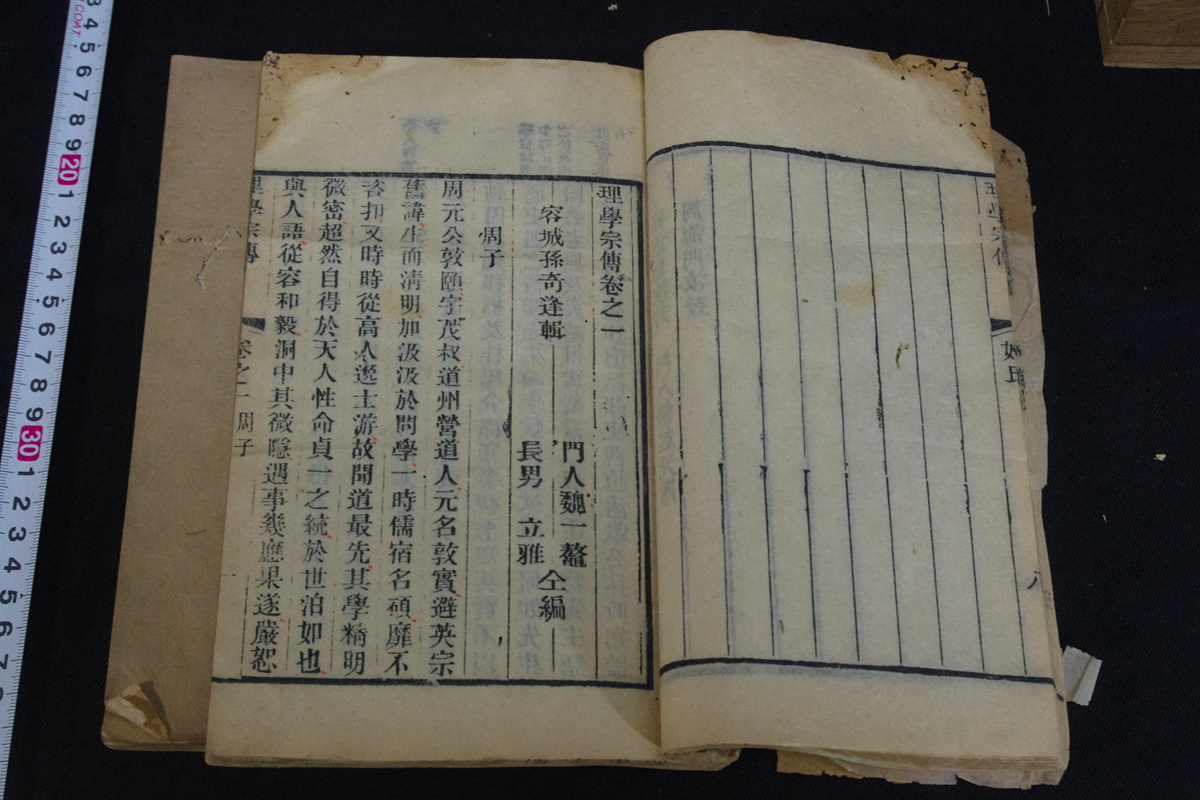 理學宗傳卷之一
容城孫奇逢輯
門人魏一鼇
長男 立雅
仝編
周子
周元公敦頤字茂叔道州營道人元名敦實避英宗
舊諱生而清明加汲汲於問學一時儒宿名碩靡不
咨扣又時時從高人逸士游故聞道最先其學精明
微密超然自得於天人性命貞一之統於世泊如也
與人語從容和毅洞中其微隱遇事幾應果遂嚴恕
理學宗傳 卷之一 周子
3 4 5 6 7 8 9 20 1 2 3 4 5 6 7 8 9 30 1 2 3 4 5 6 7
COAT